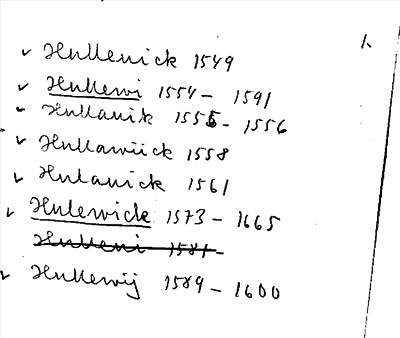 1.
✓ Hullenick 1549
✓ Hullewi 1554 - 1591
✓ Hullanik 1555 - 1556
✓ Hullawiick 1558
✓ Hulanick 1561
✓ Hulewick 1573 - 1665
Hulleni 1581 -
✓ Hullewij 1589 - 1600